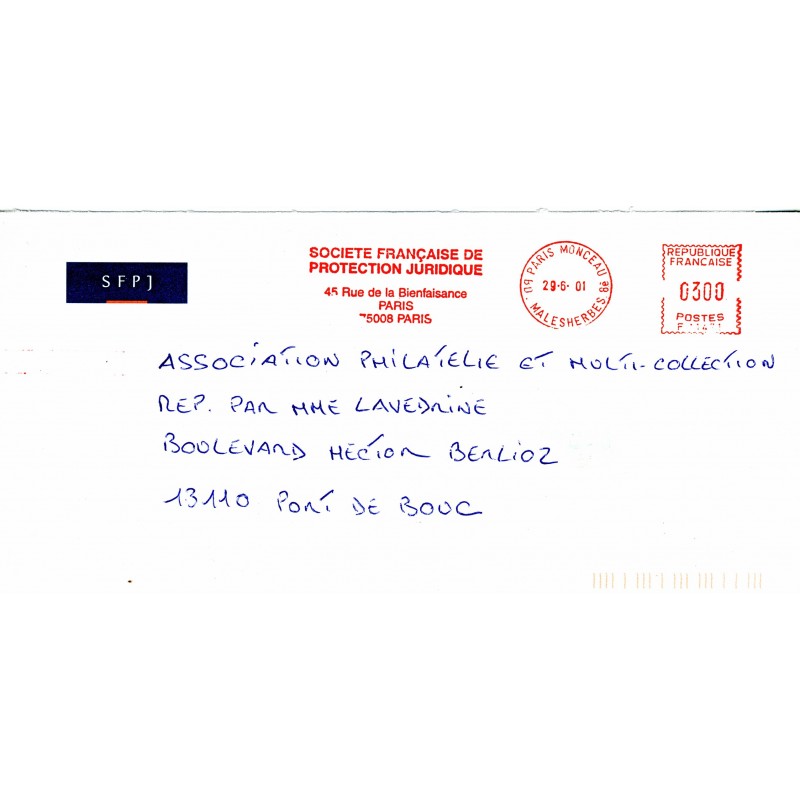 SFPJ
SOCIETE FRANÇAISE DE
PROTECTION JURIDIQUE
45 Rue de la Bienfaisance
PARIS
75008 PARIS
PARIS MONCEAU
29-6- 01
MALESHERBES 8e
REPUBLIQUE
FRANCAISE
0300
POSTES
ASSOCIATION PHILATELIE ET MULTI-COLLECTION
REP. PAR MME LAVEDRINE
BOULEVARD HECTOR BERLIOZ
13110 PORT DE BOUC